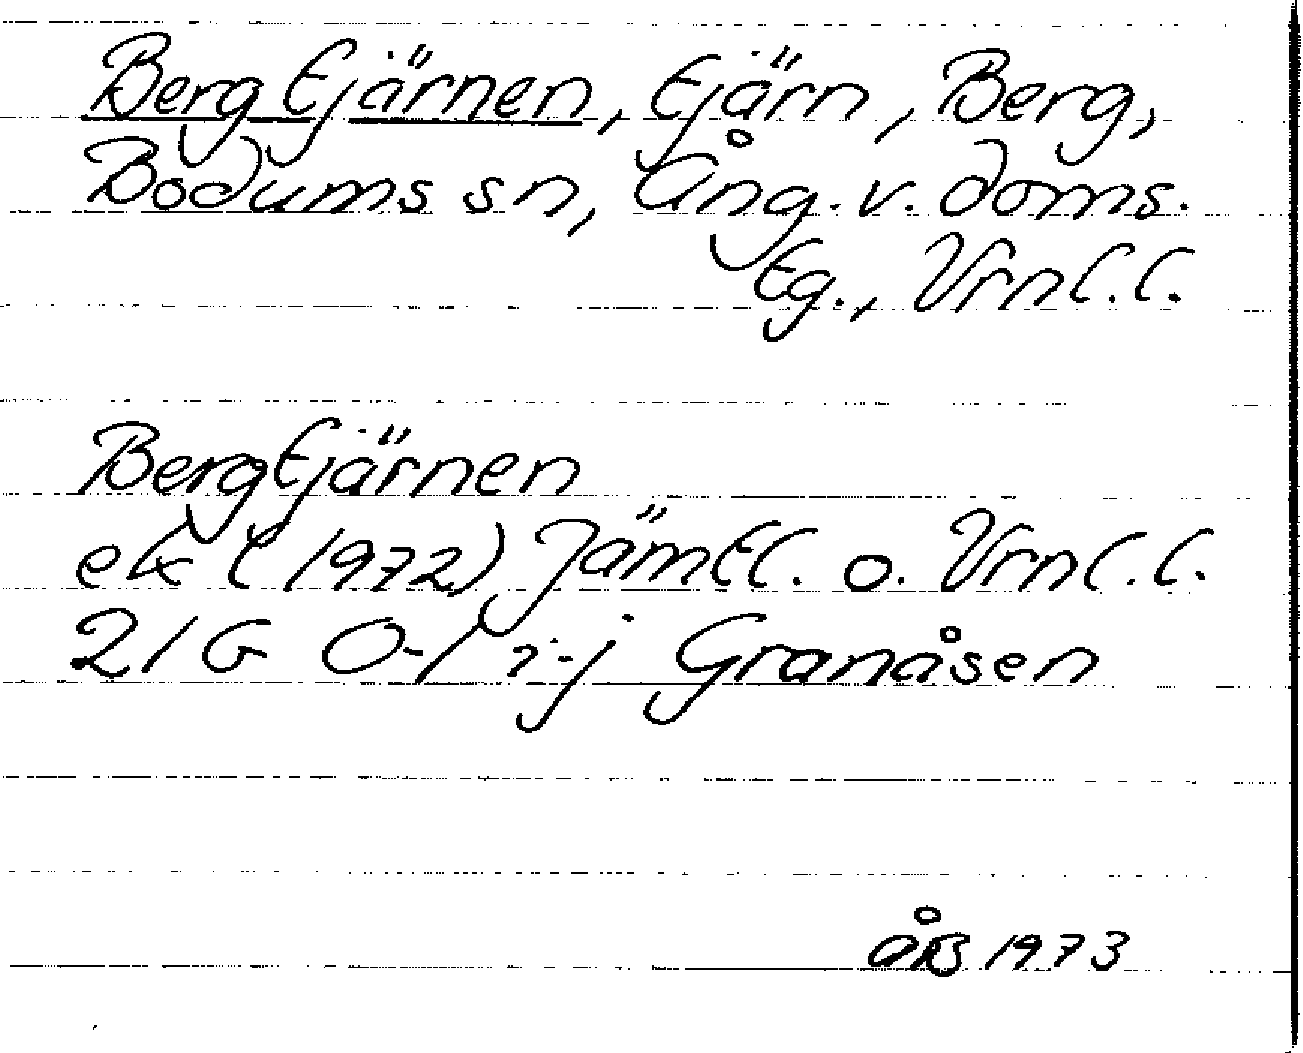 Bergtjärnen, tjärn, Berg,
Bodums sn, Ång. v. doms.
tg., Vrnl.l.
Bergtjärnen
ek (1972) Jämtl. o. Vrnl.l.
21G 0-1 i-j Granåsen
ÅB 1973